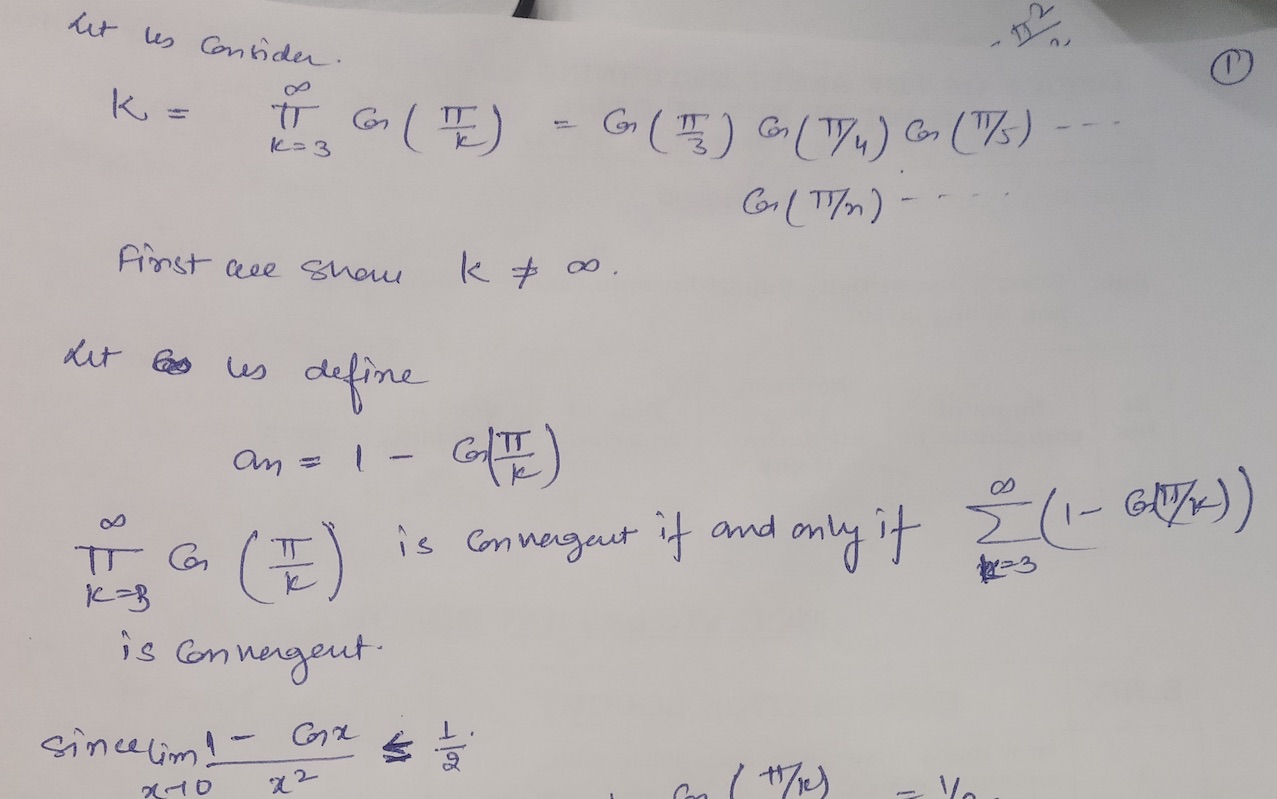 - π²/2
①
Let us Consider.
K = ∞ π k=3 Cos (π/k) = Cos (π/3) Cos (π/4) Cos (π/5) ----
Cos (π/n) - - . . .
First we show k ≠ ∞.
Let us define
an = 1 - Cos(π/k)
∞ π k=3 Cos (π/k) is Convergent if and only if ∞ Σ k=3 (1 - Cos(π/k))
is Convergent.
Since lim x→0 1 - Cos x / x² ≤ 1/2.
Cos (π/k) = 1/2